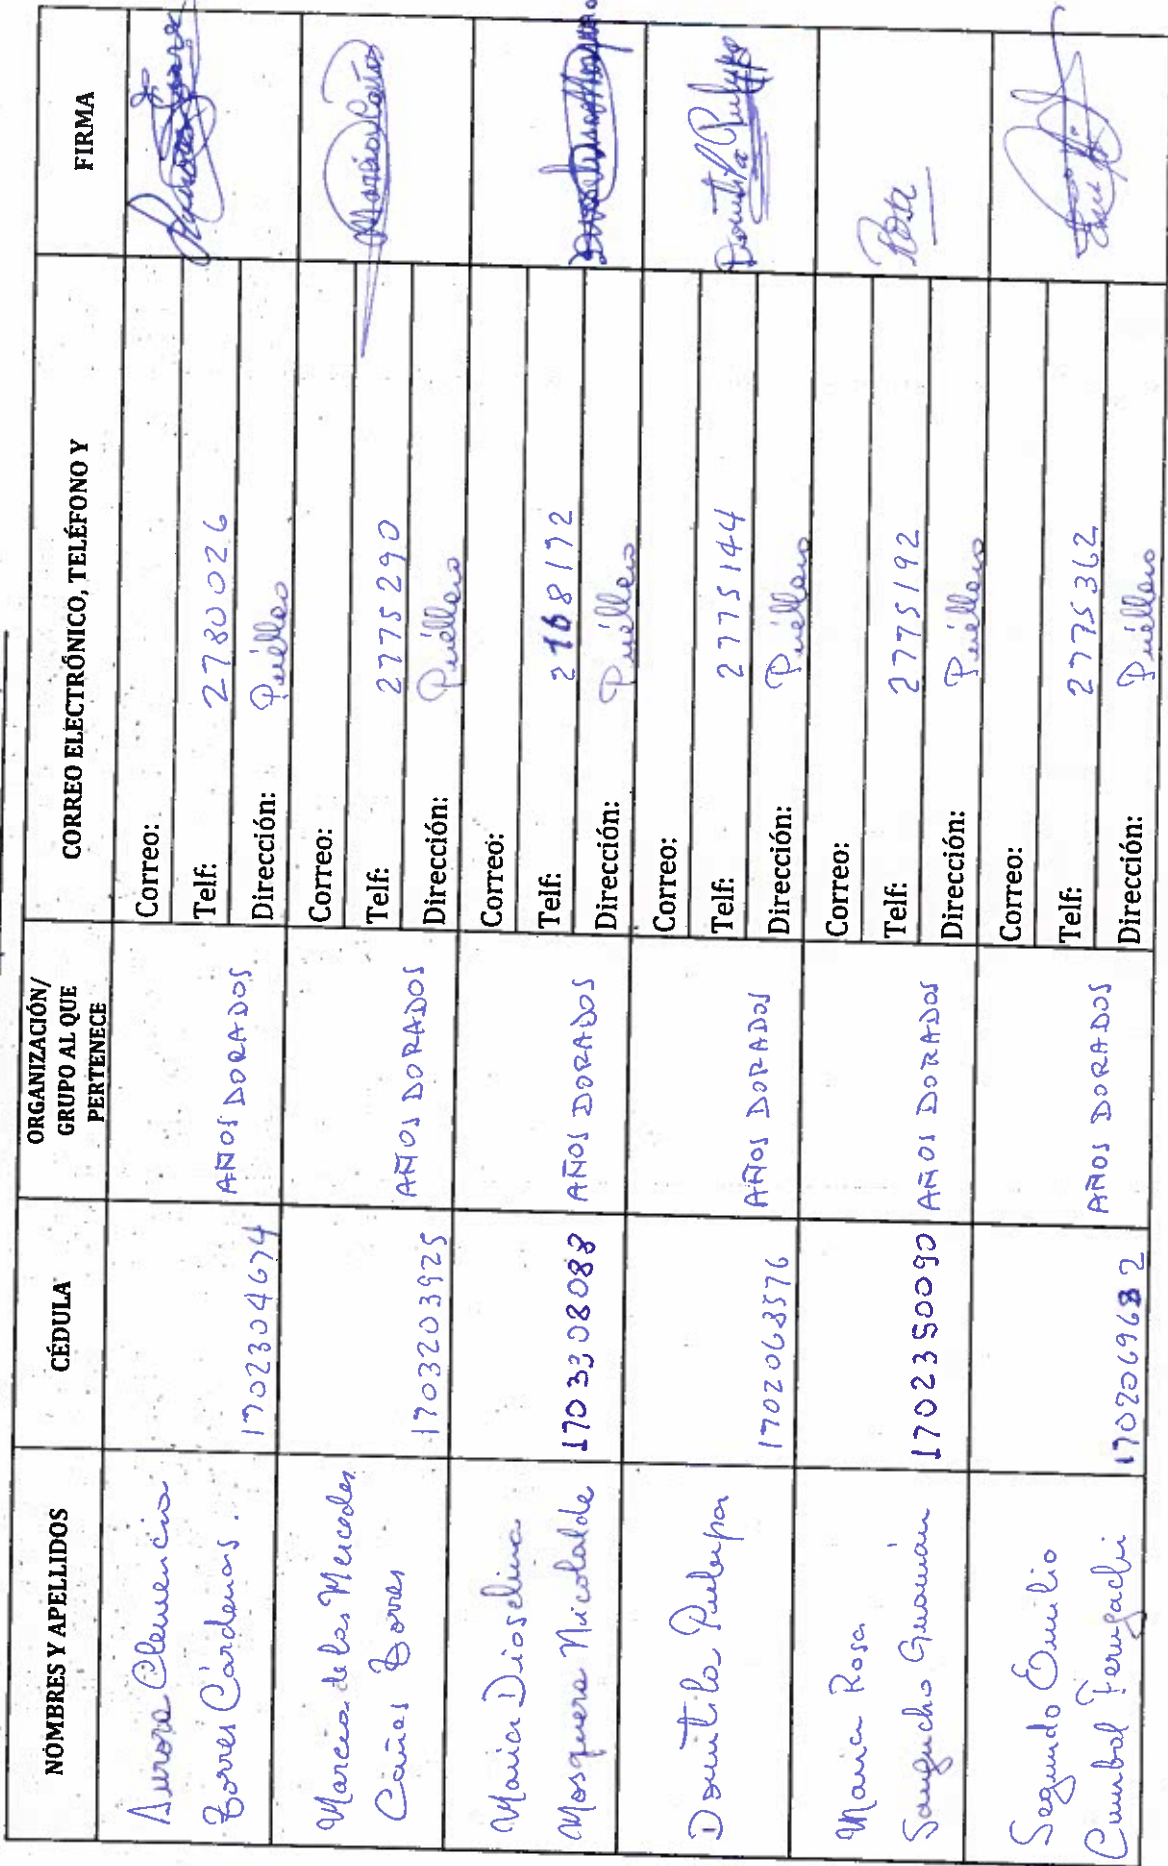 NOMBRES Y APELLIDOS CÉDULA ORGANIZACIÓN/ GRUPO AL QUE PERTENECE CORREO ELECTRÓNICO, TELÉFONO Y FIRMA
Aurora Clemencia
Torres Cárdenas.
1702304674
AÑOS DORADOS
Correo:
Telf: 2780026
Dirección: Puéllaro
Marcia de las Mercedes
Cañas Torres
1703203925
AÑOS DORADOS
Correo:
Telf: 2775290
Dirección: Puéllaro
Maria Dioselina
Mosquera Nicolalde
1703308088
AÑOS DORADOS
Correo:
Telf: 2168172
Dirección: Puéllaro
Domitila
1702063576
AÑOS DORADOS
Correo:
Telf: 2775144
Dirección: Puéllaro
Domitila
Maria Rosa
Sangucho Guamán
1702350090
AÑOS DORADOS
Correo:
Telf: 2775192
Dirección: Puéllaro
Rosa
Segundo Emilio
Cumbal Terugachi
1702069682
AÑOS DORADOS
Correo:
Telf: 2775362
Dirección: Puéllaro